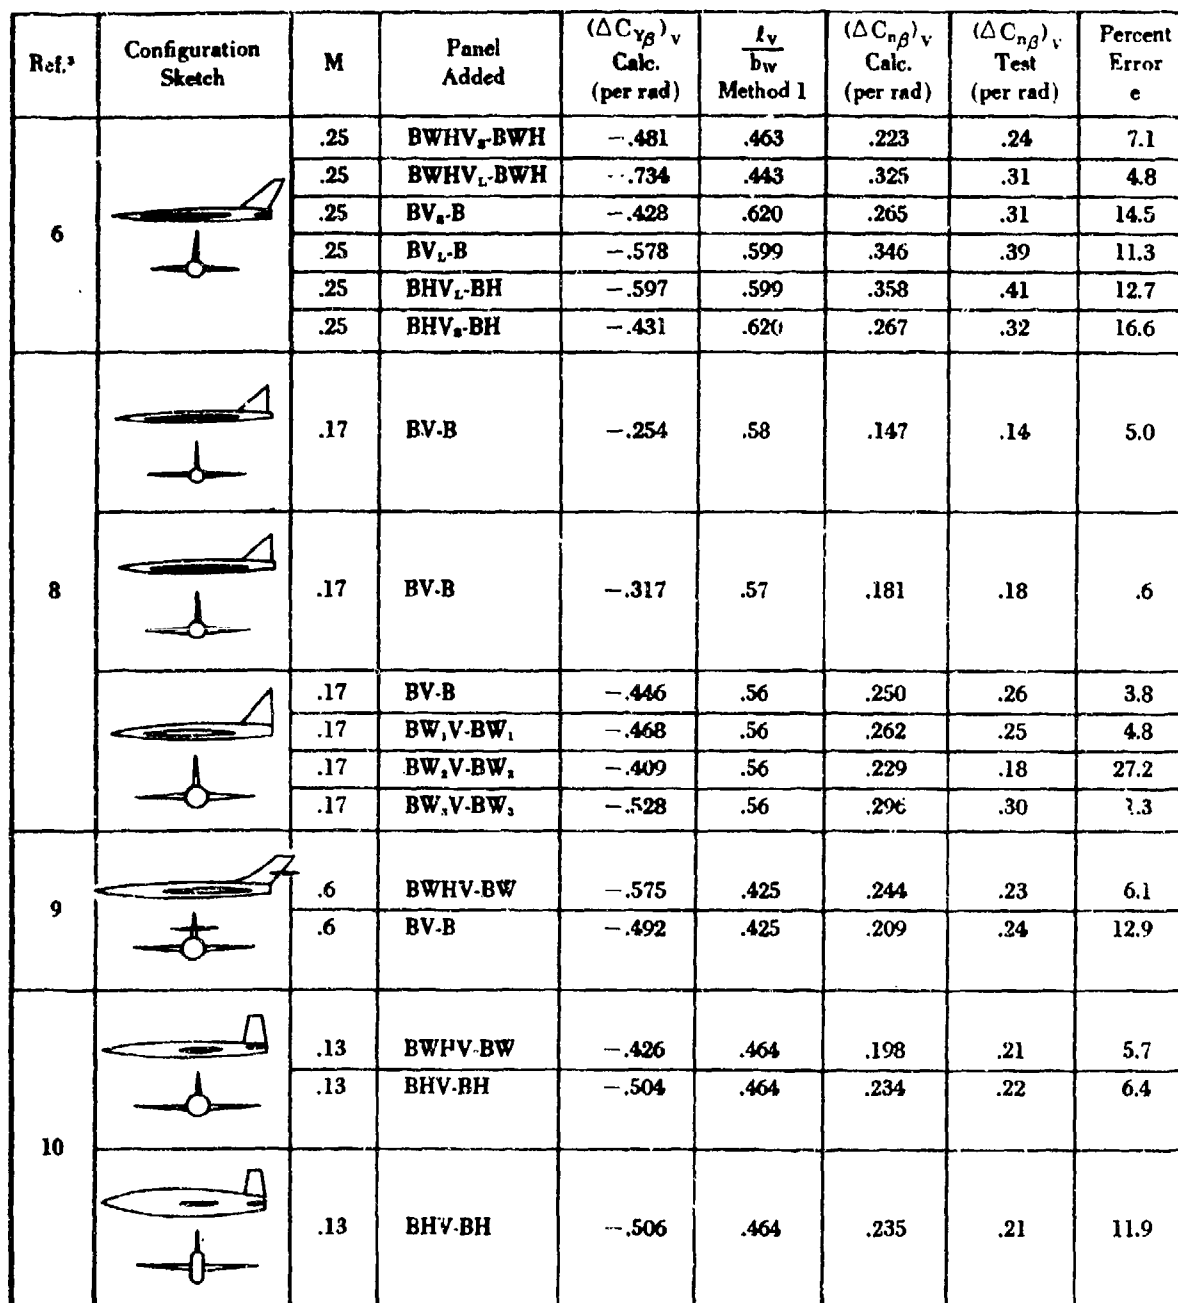 Ref.³ | Configuration Sketch | M | Panel Added | (ΔC_Yβ)_V Calc. (per rad) | ℓ_V / b_W Method 1 | (ΔC_nβ)_V Calc. (per rad) | (ΔC_nβ)_V Test (per rad) | Percent Error e
6 | .25 | BWHVₛ-BWH | −.481 | .463 | .223 | .24 | 7.1
.25 | BWHV_L-BWH | −.734 | .443 | .325 | .31 | 4.8
.25 | BVₛ-B | −.428 | .620 | .265 | .31 | 14.5
.25 | BV_L-B | −.578 | .599 | .346 | .39 | 11.3
.25 | BHV_L-BH | −.597 | .599 | .358 | .41 | 12.7
.25 | BHVₛ-BH | −.431 | .620 | .267 | .32 | 16.6
8 | .17 | BV-B | −.254 | .58 | .147 | .14 | 5.0
.17 | BV-B | −.317 | .57 | .181 | .18 | .6
.17 | BV-B | −.446 | .56 | .250 | .26 | 3.8
.17 | BW₁V-BW₁ | −.468 | .56 | .262 | .25 | 4.8
.17 | BW₂V-BW₂ | −.409 | .56 | .229 | .18 | 27.2
.17 | BW₃V-BW₃ | −.528 | .56 | .296 | .30
9 | .6 | BWHV-BW | −.575 | .425 | .244 | .23 | 6.1
.6 | BV-B | −.492 | .425 | .209 | .24 | 12.9
10 | .13 | BWHV-BW | −.426 | .464 | .198 | .21 | 5.7
.13 | BHV-BH | −.504 | .464 | .234 | .22 | 6.4
.13 | BHV-BH | −.506 | .464 | .235 | .21 | 11.9